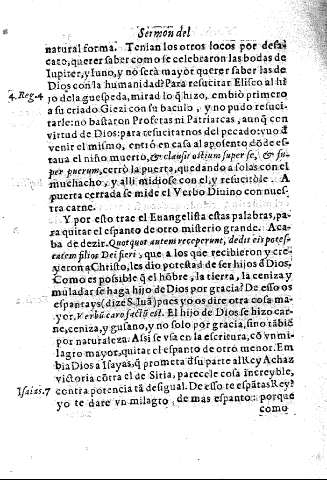 Sermon del
natural forma. Tenian los otros locos por desa-
cato, querer saber como se celebraron las bodas de
Iupiter, y Iuno, y no serà mayor querer saber las de
Dios con la humanidad? Para resucitar Eliseo al hi
4. Reg. 4 jo dela guespeda, mirad lo q̃ hizo, embiò primero
a su criado Giezi con su baculo, y no pudo resuci-
tarle: no bastaron Profetas ni Patriarcas, aunq̃ con
virtud de Dios: para resucitarnos del pecado: vuo d̃
venir el mismo, entrò en casa al aposento dõde es-
taua el niño muerto, & clausit ostium super se, & su-
per puerum, cerrò la puerta, quedando a solas con el
muchacho, y alli midiose con el, y resucitòle. A
puerta cerrada se mide el Verbo Diuino con nues-
tra carne.
Y por esto trae el Euangelista estas palabras, pa-
ra quitar el espanto de otro misterio grande. Aca-
ba de dezir. Quotquot autem receperunt, dedit eis potes-
tatem filios Dei fieri, que a los que recibieron y cre-
yeron a Christo, les dio potestad de ser hijos d̃ Dios.
Como es possible q̃ el hõbre, la tierra, la ceniza y
muladar se haga hijo de Dios por gracia? De esso os
espantays (dize S. Iuã) pues yo os dire otra cosa ma-
yor. Verbũ caro factũ est. El hijo de Dios se hizo car-
ne, ceniza, y gusano, y no solo por gracia, sino tãbiẽ
por naturaleza. Assi se vsa en la escritura, cõ vn mi-
lagro mayor, quitar el espanto de otro menor. Em
bia Dios a Isayas, q̃ prometa d̃ su parte al Rey Achaz
victoria cõtra el de Siria, parecele cosa increyble,
Isaias. 7 contra potencia tã desigual. De esso te espãtas Rey?
yo te dare vn milagro, de mas espanto: porque
como